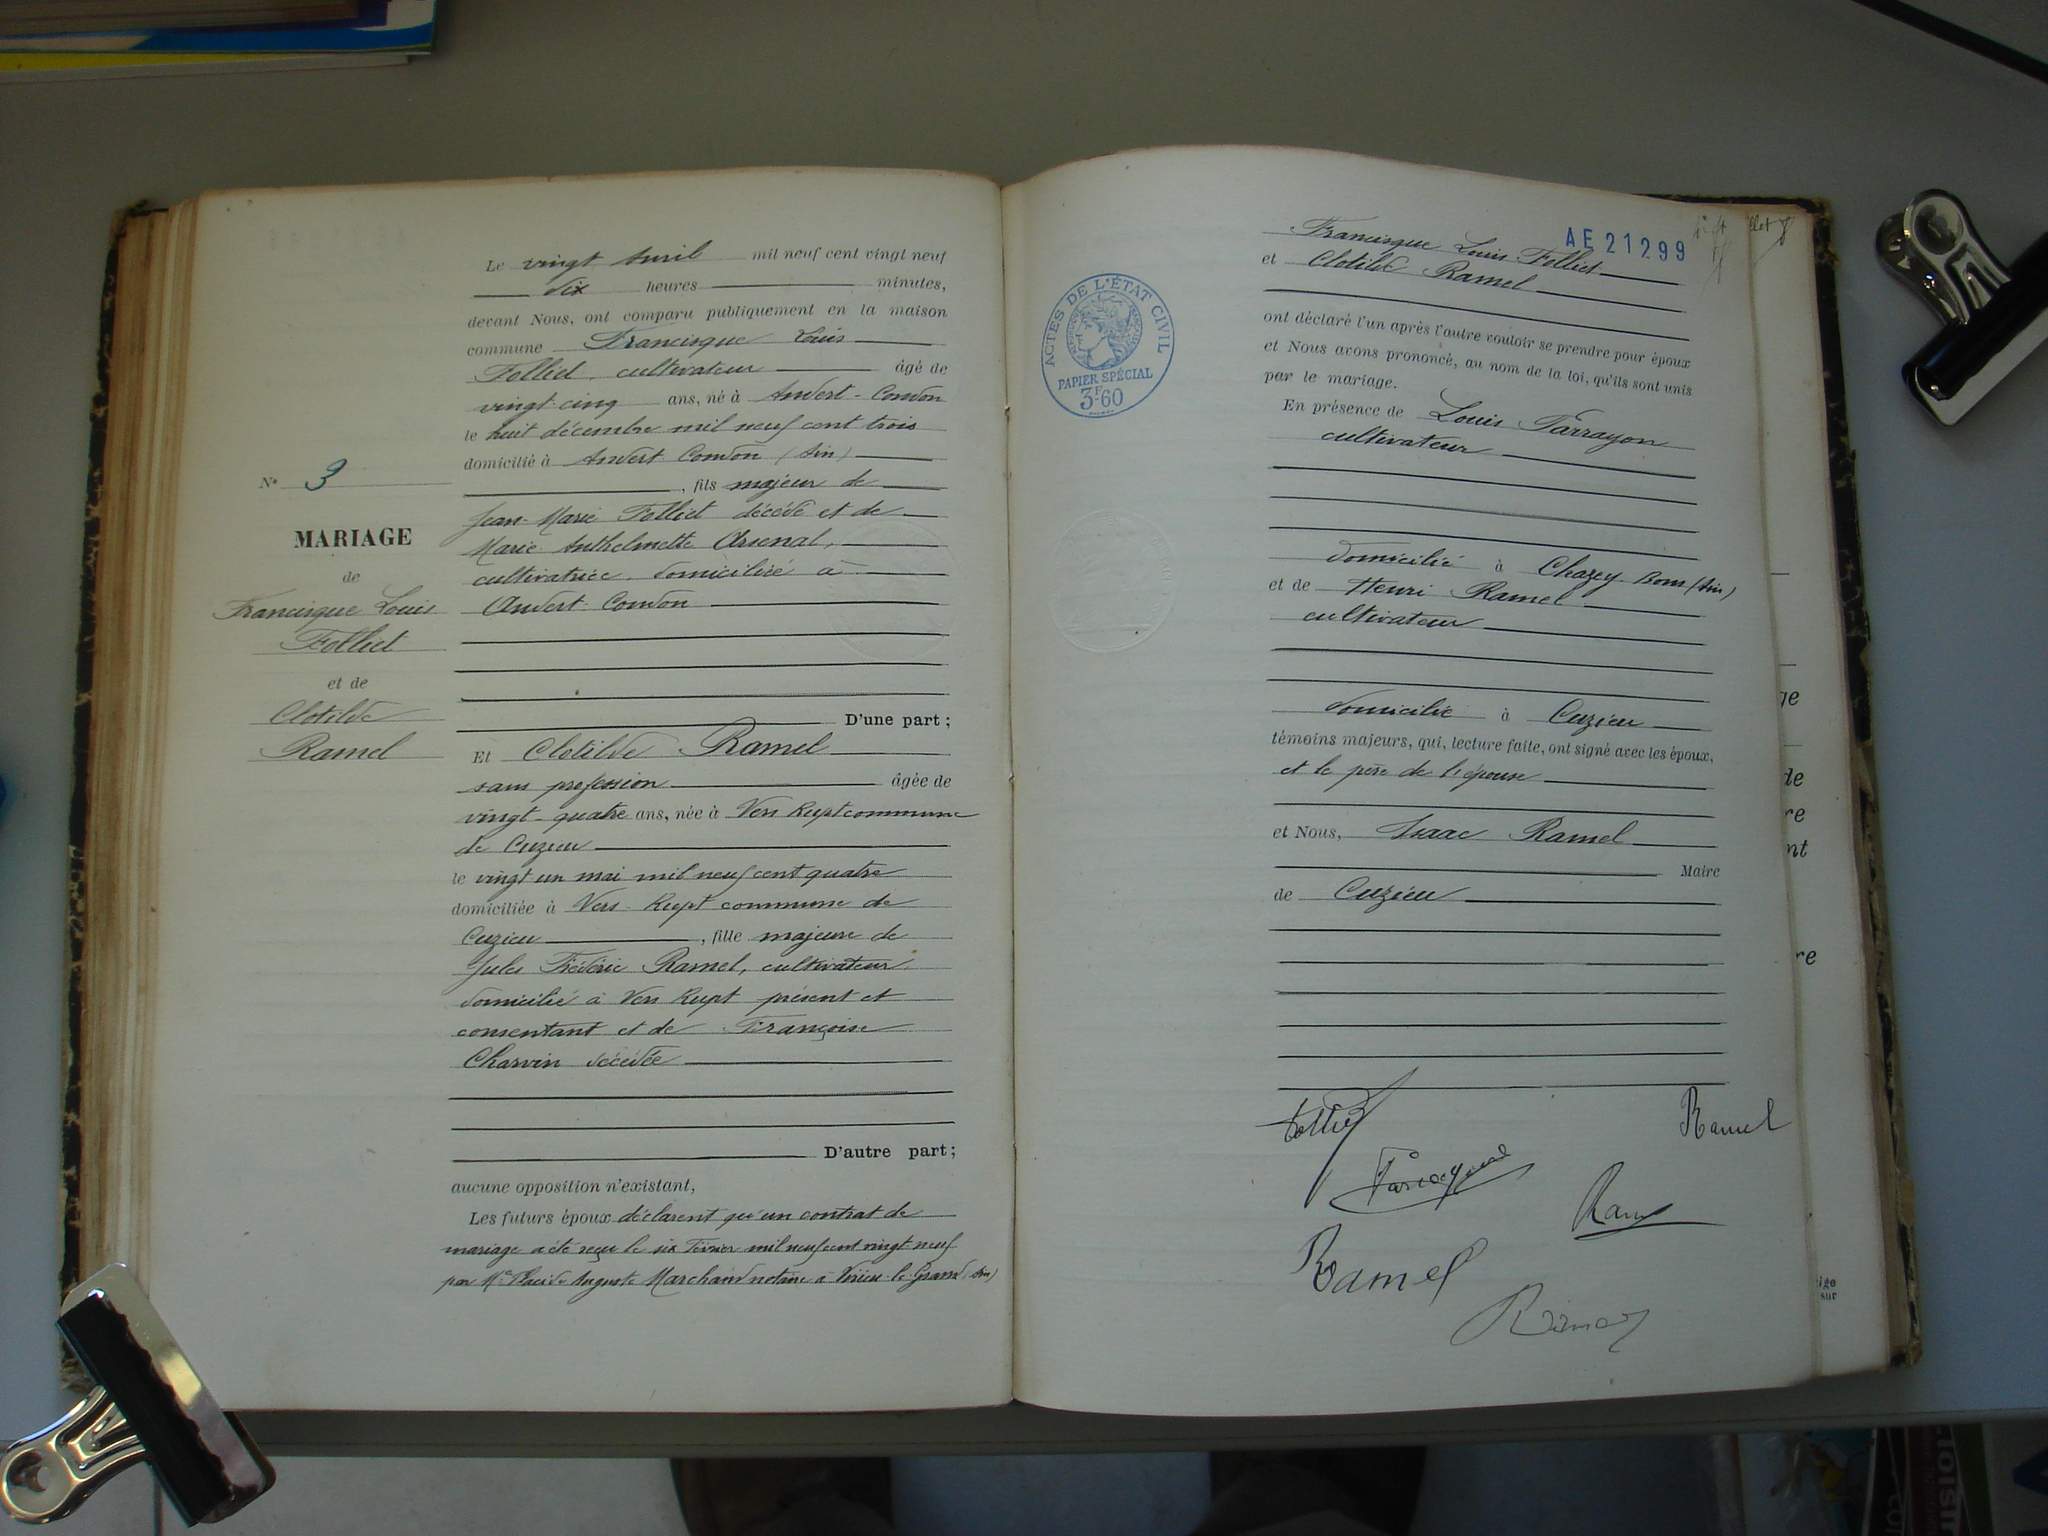 Le vingt Avril mil neuf cent vingt neuf
dix heures minutes,
devant Nous, ont comparu publiquement en la maison
commune Francisque Louis
Folliet, cultivateur âgé de
vingt-cinq ans, né à Andert-Condon
le huit décembre mil neuf cent trois
domicilié à Andert-Condon (Ain)
, fils majeur de
Jean-Marie Folliet décédé et de
Marie Anthelmette Arsenal,
cultivatrice domiciliée à
Andert-Condon
D'une part ;
Et Clotilde Ramel
sans profession âgée de
vingt-quatre ans, née à Vers Rupt commune
de Cuzieu
le vingt un mai mil neuf cent quatre
domiciliée à Vers-Rupt commune de
Cuzieu , fille majeure de
Jules Frédéric Ramel, cultivateur
domicilié à Vers Rupt présent et
consentant et de Françoise
Charvin décédée
D'autre part ;
aucune opposition n'existant,
Les futurs époux déclarent qu'un contrat de
mariage a été reçu le six Février mil neuf cent vingt neuf
par Me Placide Auguste Marchand notaire à Virieu-le-Grand (Ain)
No 3
MARIAGE
de
Francisque Louis
Folliet
et de
Clotilde
Ramel
AE 21299
Francisque Louis Folliet
et Clotilde Ramel
ont déclaré l'un après l'autre vouloir se prendre pour époux
et Nous avons prononcé, au nom de la loi, qu'ils sont unis
par le mariage.
En présence de Louis Tarrayon
cultivateur
domicilié à Chazey Bons (Ain)
et de Henri Ramel
cultivateur
domicilié à Cuzieu
témoins majeurs, qui, lecture faite, ont signé avec les époux,
et le père de l'épouse
et Nous, Isaac Ramel
Maire
de Cuzieu
Folliet
Ramel
Ramel
Ramel
ACTES DE L'ÉTAT CIVIL
RÉPUBLIQUE FRANÇAISE
PAPIER SPÉCIAL
3F.60